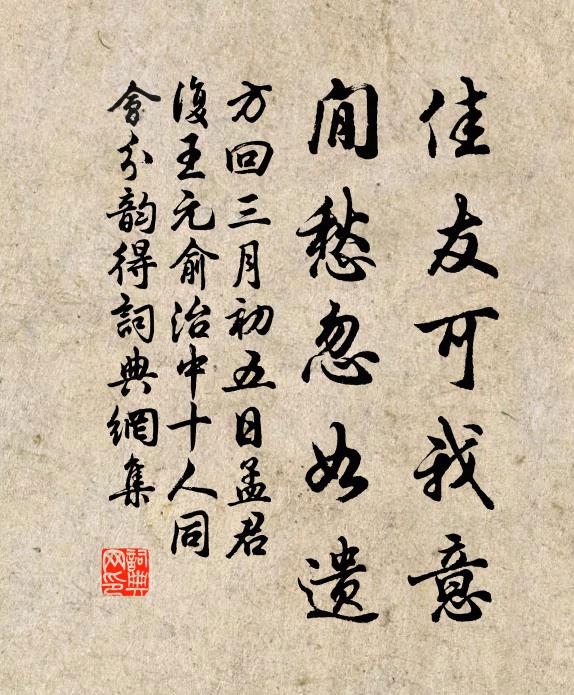 佳友可我意
閒愁忽如遺
方回三月初五日孟君
復王元俞治中十人同
會分韵得詞典網集
詞典網印